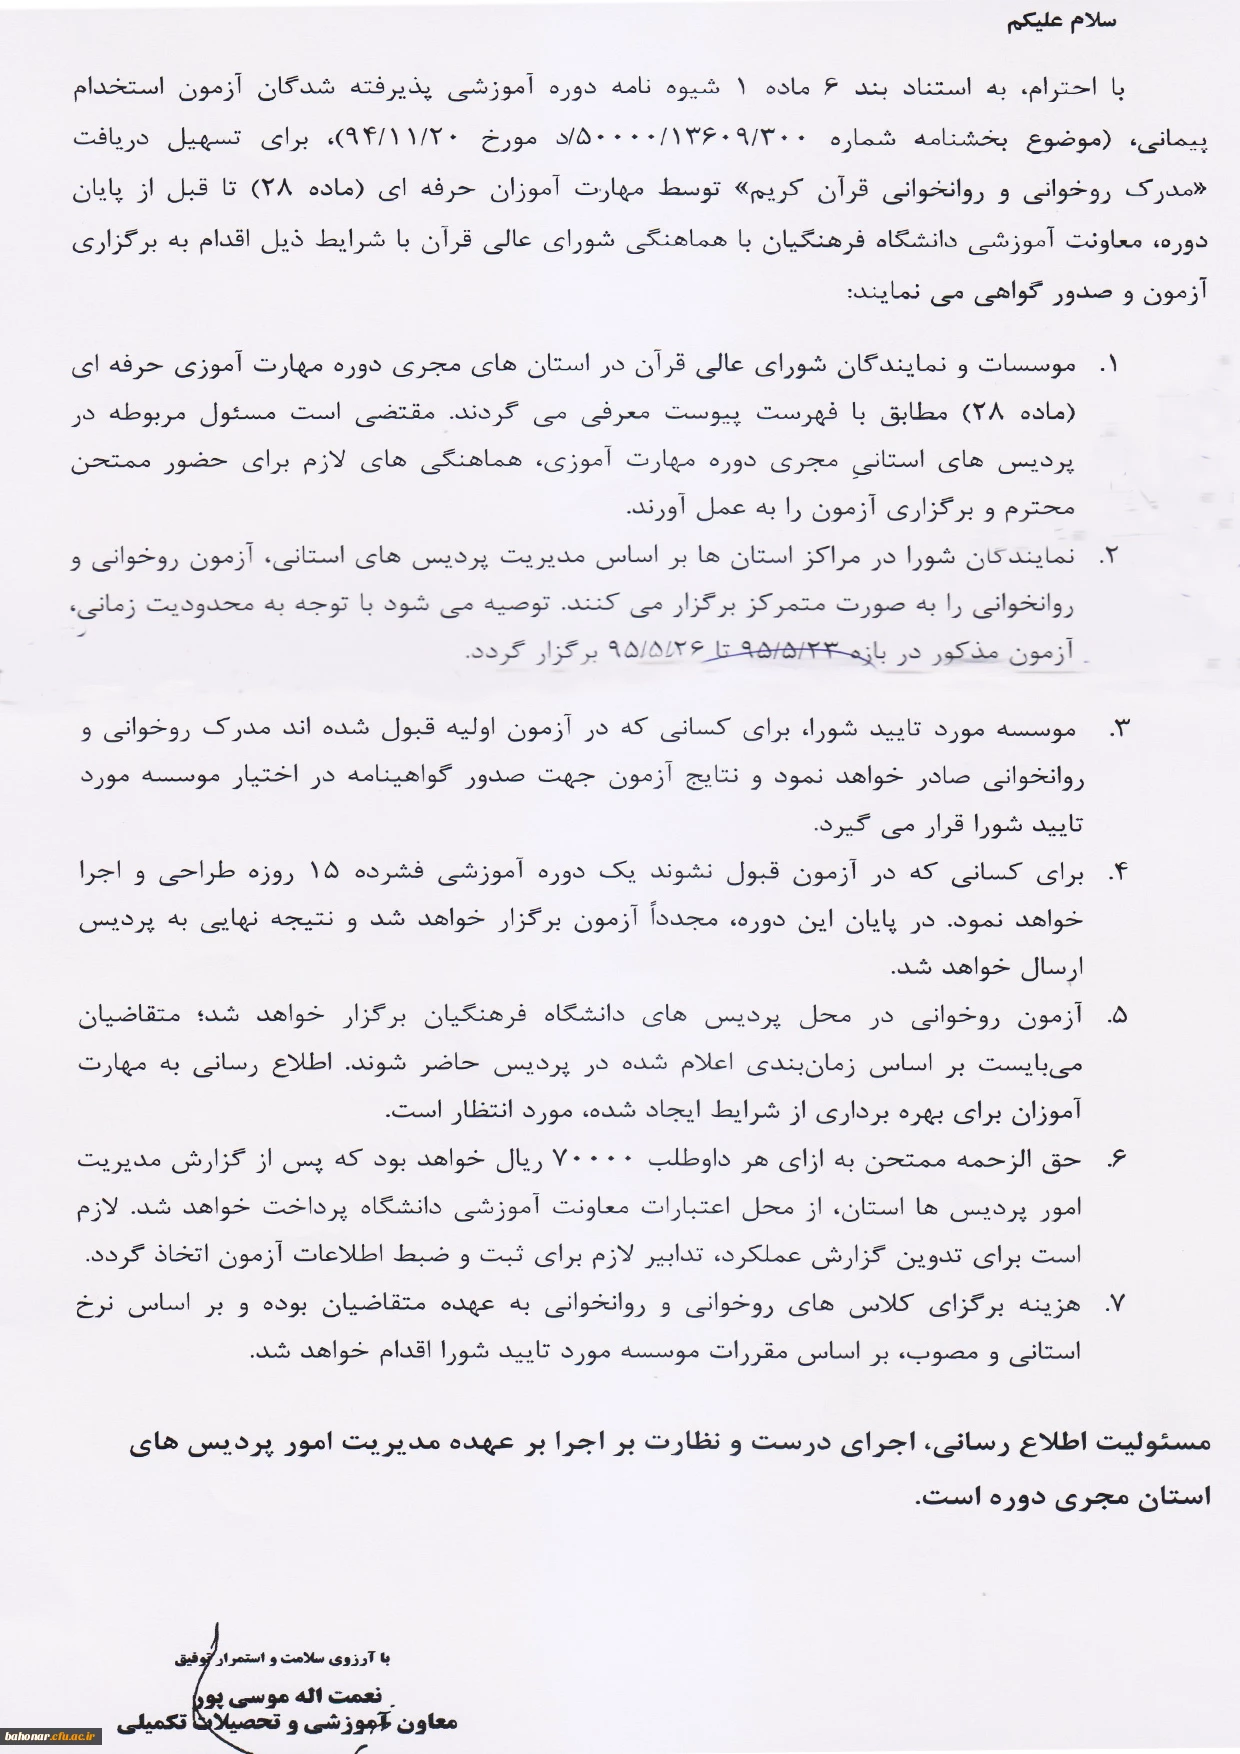 سلام علیکم
با احترام، به استناد بند ۶ ماده ۱ شیوه نامه دوره آموزشی پذیرفته شدگان آزمون استخدام
پیمانی، (موضوع بخشنامه شماره ۵۰۰۰۰/۱۳۶۰۹/۳۰۰/د مورخ ۹۴/۱۱/۲۰)، برای تسهیل دریافت
«مدرک روخوانی و روانخوانی قرآن کریم» توسط مهارت آموزان حرفه ای (ماده ۲۸) تا قبل از پایان
دوره، معاونت آموزشی دانشگاه فرهنگیان با هماهنگی شورای عالی قرآن با شرایط ذیل اقدام به برگزاری
آزمون و صدور گواهی می نمایند:
۱. موسسات و نمایندگان شورای عالی قرآن در استان های مجری دوره مهارت آموزی حرفه ای
(ماده ۲۸) مطابق با فهرست پیوست معرفی می گردند. مقتضی است مسئول مربوطه در
پردیس های استانیِ مجری دوره مهارت آموزی، هماهنگی های لازم برای حضور ممتحن
محترم و برگزاری آزمون را به عمل آورند.
۲. نمایندگان شورا در مراکز استان ها بر اساس مدیریت پردیس های استانی، آزمون روخوانی و
روانخوانی را به صورت متمرکز برگزار می کنند. توصیه می شود با توجه به محدودیت زمانی،
آزمون مذکور در بازه ۹۵/۵/۲۳ تا ۹۵/۵/۲۶ برگزار گردد.
۳. موسسه مورد تایید شورا، برای کسانی که در آزمون اولیه قبول شده اند مدرک روخوانی و
روانخوانی صادر خواهد نمود و نتایج آزمون جهت صدور گواهینامه در اختیار موسسه مورد
تایید شورا قرار می گیرد.
۴. برای کسانی که در آزمون قبول نشوند یک دوره آموزشی فشرده ۱۵ روزه طراحی و اجرا
خواهد نمود. در پایان این دوره، مجدداً آزمون برگزار خواهد شد و نتیجه نهایی به پردیس
ارسال خواهد شد.
۵. آزمون روخوانی در محل پردیس های دانشگاه فرهنگیان برگزار خواهد شد؛ متقاضیان
می‌بایست بر اساس زمان‌بندی اعلام شده در پردیس حاضر شوند. اطلاع رسانی به مهارت
آموزان برای بهره برداری از شرایط ایجاد شده، مورد انتظار است.
۶. حق الزحمه ممتحن به ازای هر داوطلب ۷۰۰۰۰ ریال خواهد بود که پس از گزارش مدیریت
امور پردیس ها استان، از محل اعتبارات معاونت آموزشی دانشگاه پرداخت خواهد شد. لازم
است برای تدوین گزارش عملکرد، تدابیر لازم برای ثبت و ضبط اطلاعات آزمون اتخاذ گردد.
۷. هزینه برگزای کلاس های روخوانی و روانخوانی به عهده متقاضیان بوده و بر اساس نرخ
استانی و مصوب، بر اساس مقررات موسسه مورد تایید شورا اقدام خواهد شد.
مسئولیت اطلاع رسانی، اجرای درست و نظارت بر اجرا بر عهده مدیریت امور پردیس های
استان مجری دوره است.
با آرزوی سلامت و استمرار توفیق
نعمت اله موسی پور
معاون آموزشی و تحصیلات تکمیلی
bahonar.cfu.ac.ir